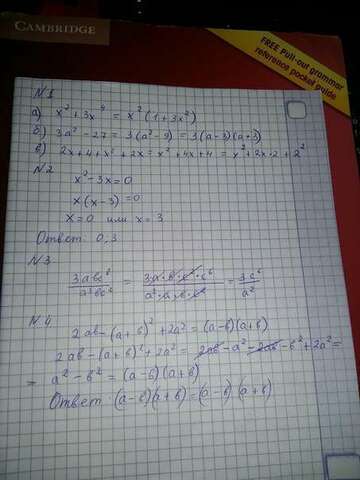 CAMBRIDGE
FREE Pull-out grammar
reference pocket guide
N1
а) x² + 3x⁴ = x² (1 + 3x²)
б) 3a² - 27 = 3(a² - 9) = 3(a - 3)(a + 3)
в) 2x + 4 + x² + 2x = x² + 4x + 4 = x² + 2x·2 + 2²
N2
x² - 3x = 0
x(x - 3) = 0
x = 0 или x = 3
Ответ: 0, 3
N3
N4
2ab - (a + b)² + 2a² = (a - b)(a + b)
2ab - (a + b)² + 2a² = 2ab - a² - 2ab - b² + 2a² =
= a² - b² = (a - b)(a + b)
Ответ: (a - b)(a + b) = (a - b)(a + b)